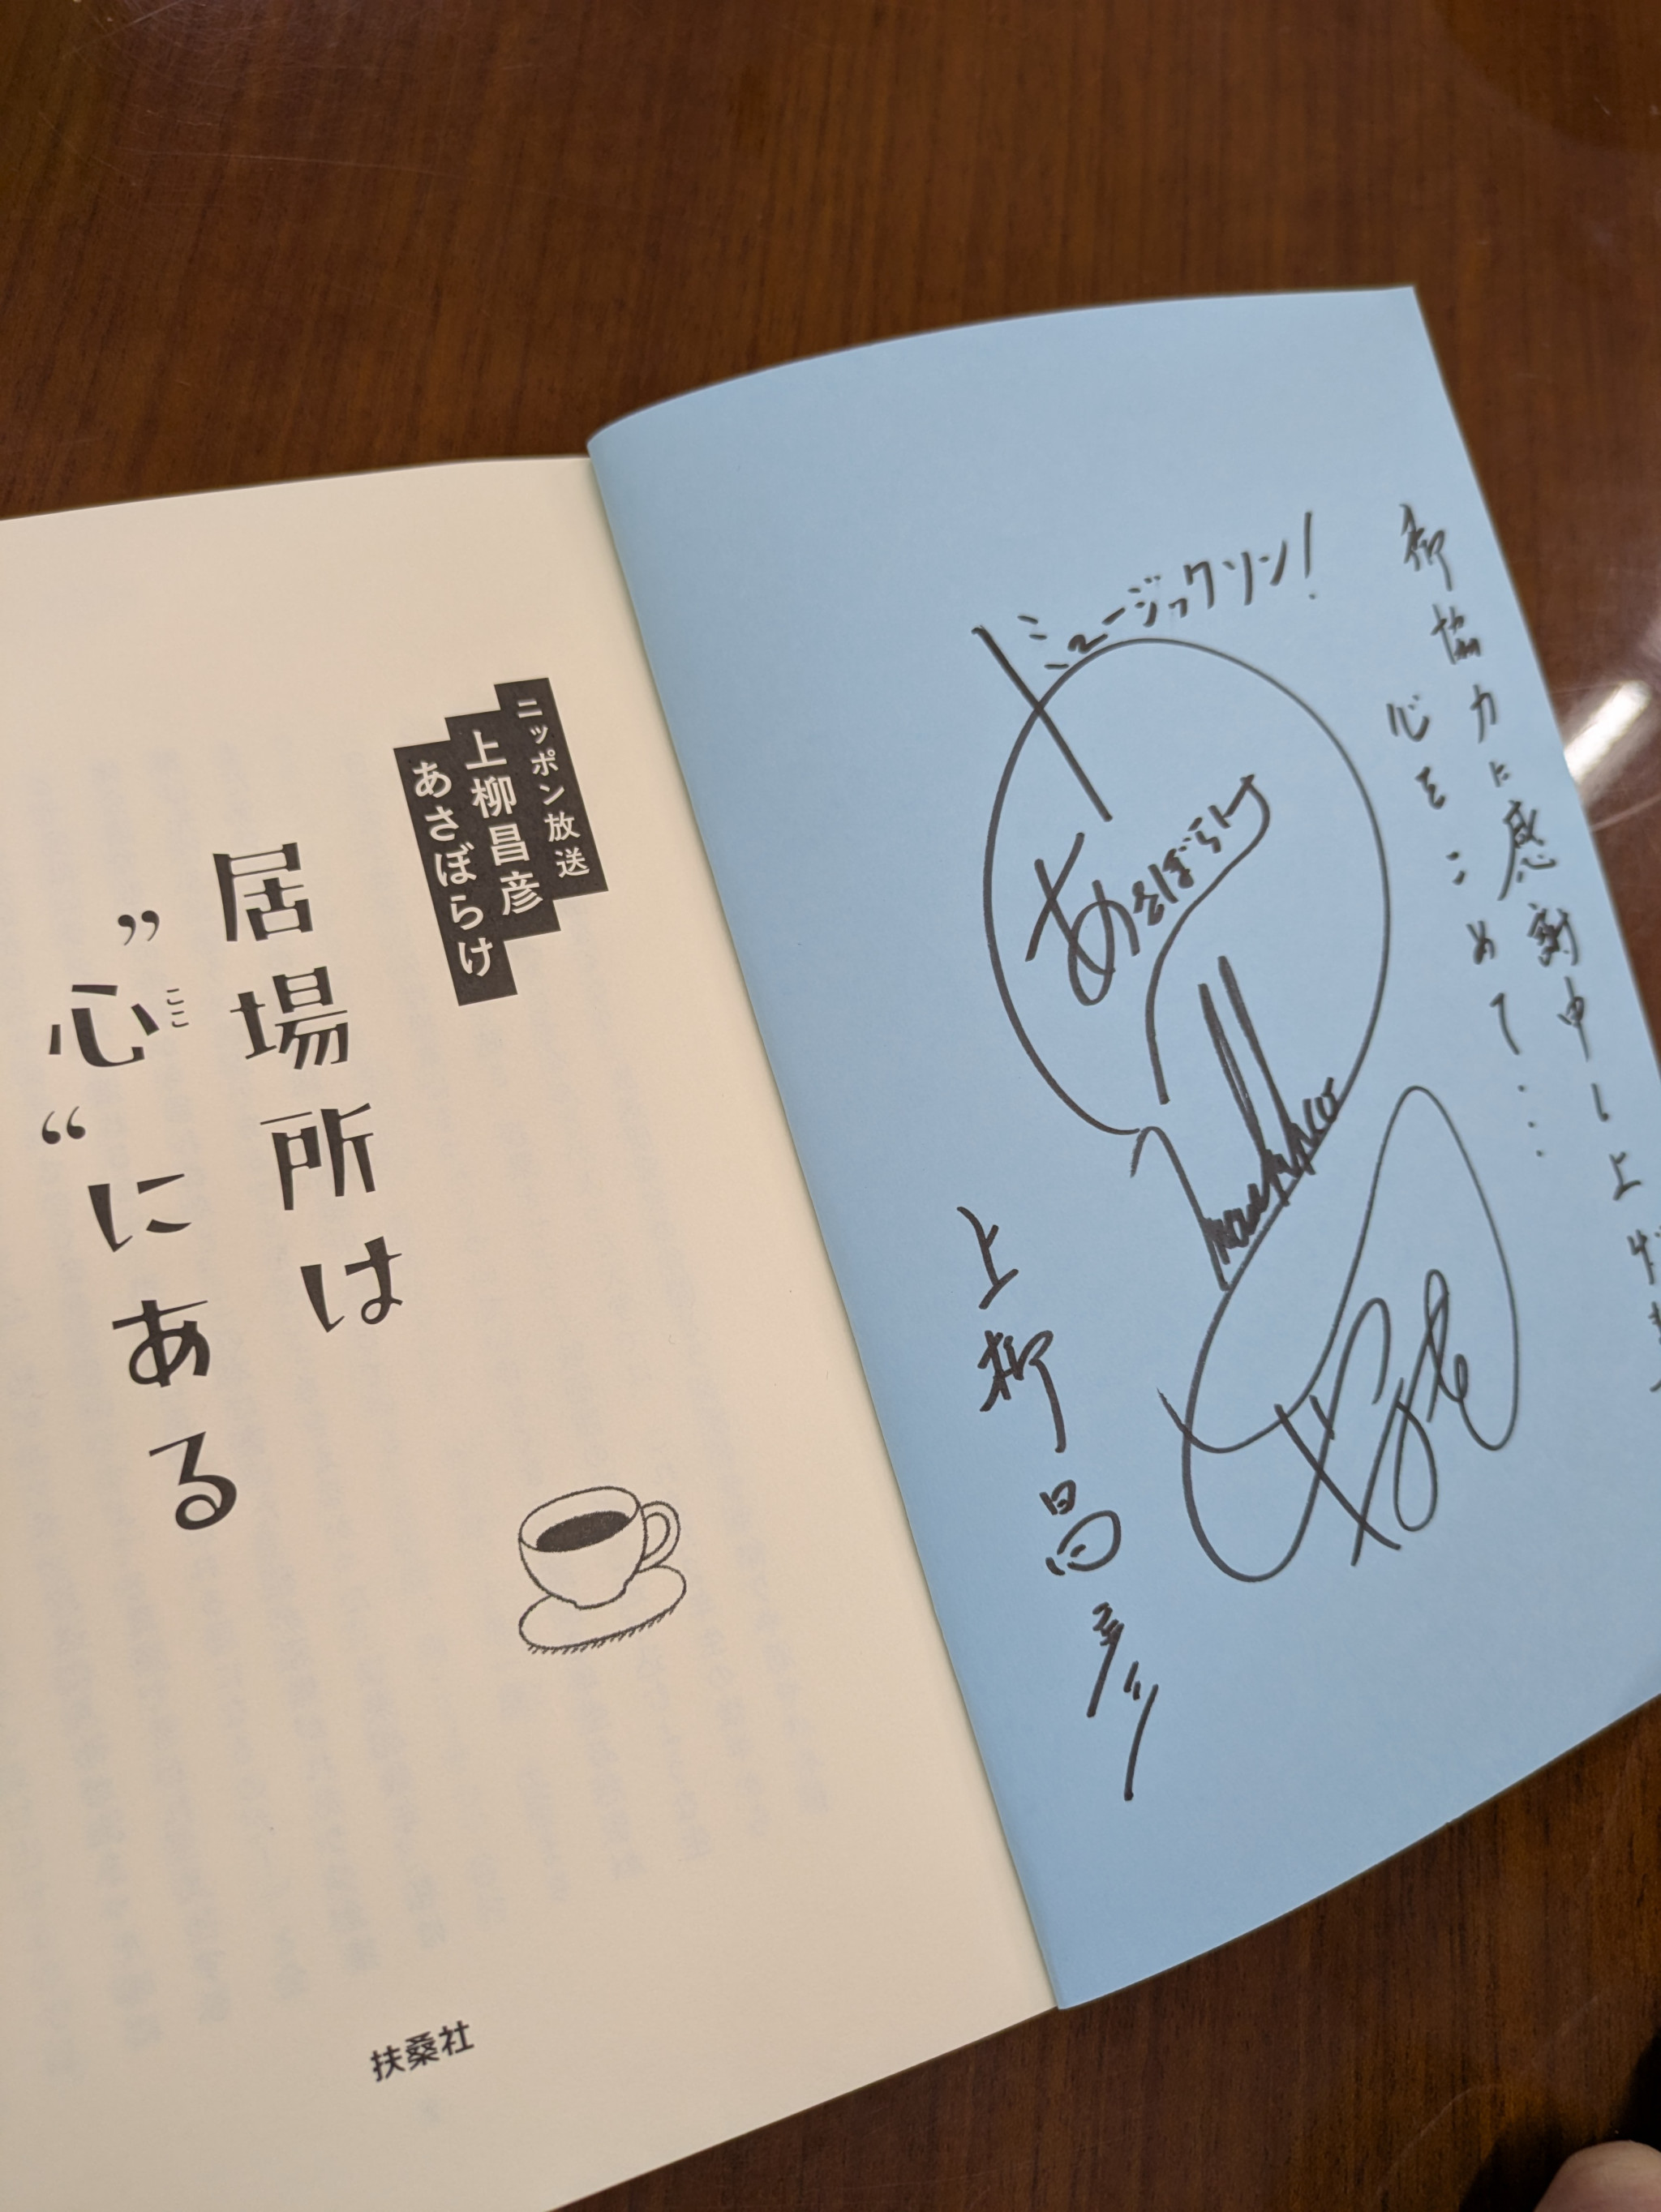 御協力に感謝申し上げま
心をこめて…
ミュージックソン！
あさぼらけ
上柳昌彦
ニッポン放送
上柳昌彦
あさぼらけ
居場所は
”心“にある
ここ
扶桑社